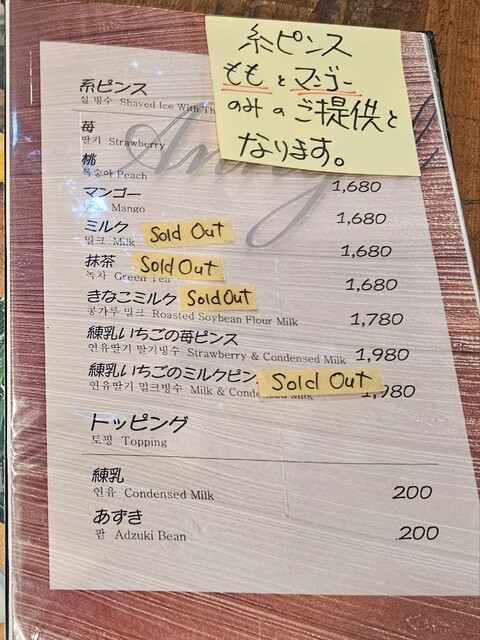 糸ピンス
ももとマンゴー
のみのご提供と
なります。
糸ピンス
실 빙수 Shaved Ice With
苺
딸기 Strawberry
桃 1,680
복숭아 Peach
マンゴー 1,680
Mango
ミルク Sold Out 1,680
밀크 Milk
抹茶 Sold Out 1,680
녹차 Green Tea
きなこミルク Sold Out 1,780
콩가루 밀크 Roasted Soybean Flour Milk
練乳いちごの苺ピンス 1,980
연유딸기 딸기빙수 Strawberry & Condensed Milk
練乳いちごのミルクピン Sold Out 1,980
연유딸기 밀크빙수 Milk & Condensed Milk
トッピング
토핑 Topping
練乳 200
연유 Condensed Milk
あずき 200
팥 Adzuki Bean